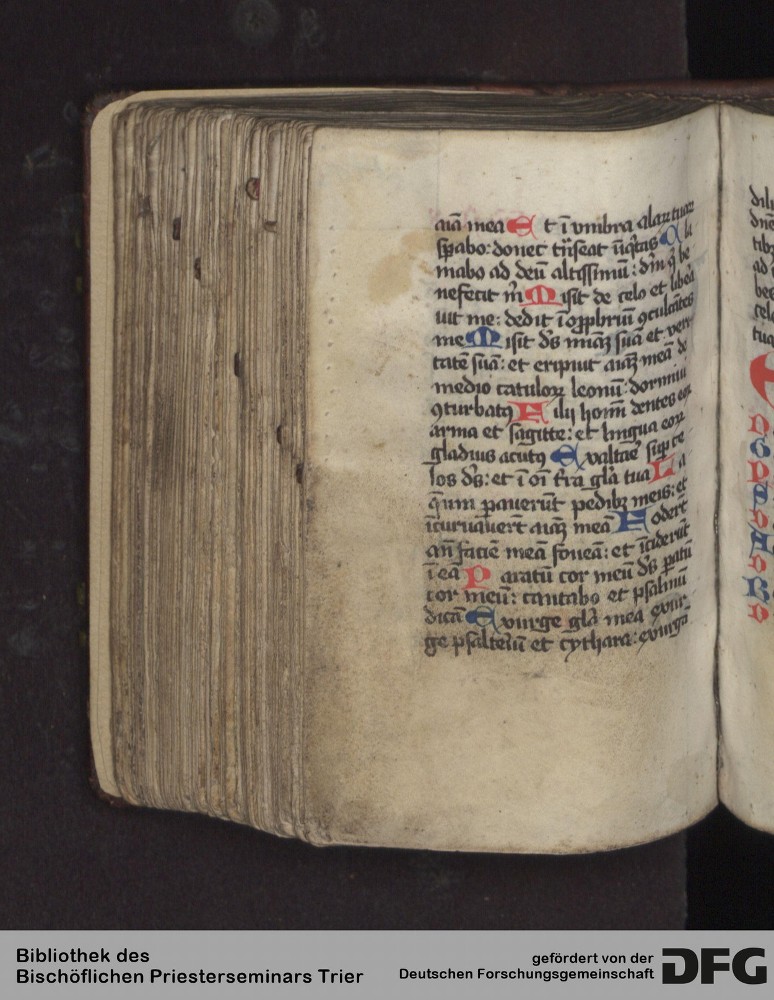 aiā mea Et ī vmbra alaꝝ tuaꝝ
sꝑabo: donec trāseat iīqͥtas Cla
mabo ad deū altissimū: dm̄ qͥ be
nefecit m̄ Misit de celo et liberā
uit me: dedit ī oꝓbriū ꝯculcātes
me Misit ds̄ miāꝫ suā et veri
tatē suā: et eripuit aiāꝫ meā de
medio catuloꝝ leonū: dormiui
ꝯturbatꝰ Filij homīnū dentes eoꝝ
arma et sagitte: et lingua eoꝝ
gladius acutꝰ Exaltare suꝑ ce
los ds̄: et ī oī tr̄a gl̄a tua La
q̄um ꝑauerūt pedibꝫ meis: et
īcuruauerūt aiāꝫ meā Foderūt
an̄ faciē meā foueā: et īciderūt
ī eā Paratū cor meū ds̄ ꝑatū
cor meū: cantabo et psalmū
dicā Exurge gl̄a mea exur
ge psalteriū et cythara: exurgā
Bibliothek des
Bischöflichen Priesterseminars Trier
gefördert von der
Deutschen Forschungsgemeinschaft
DFG